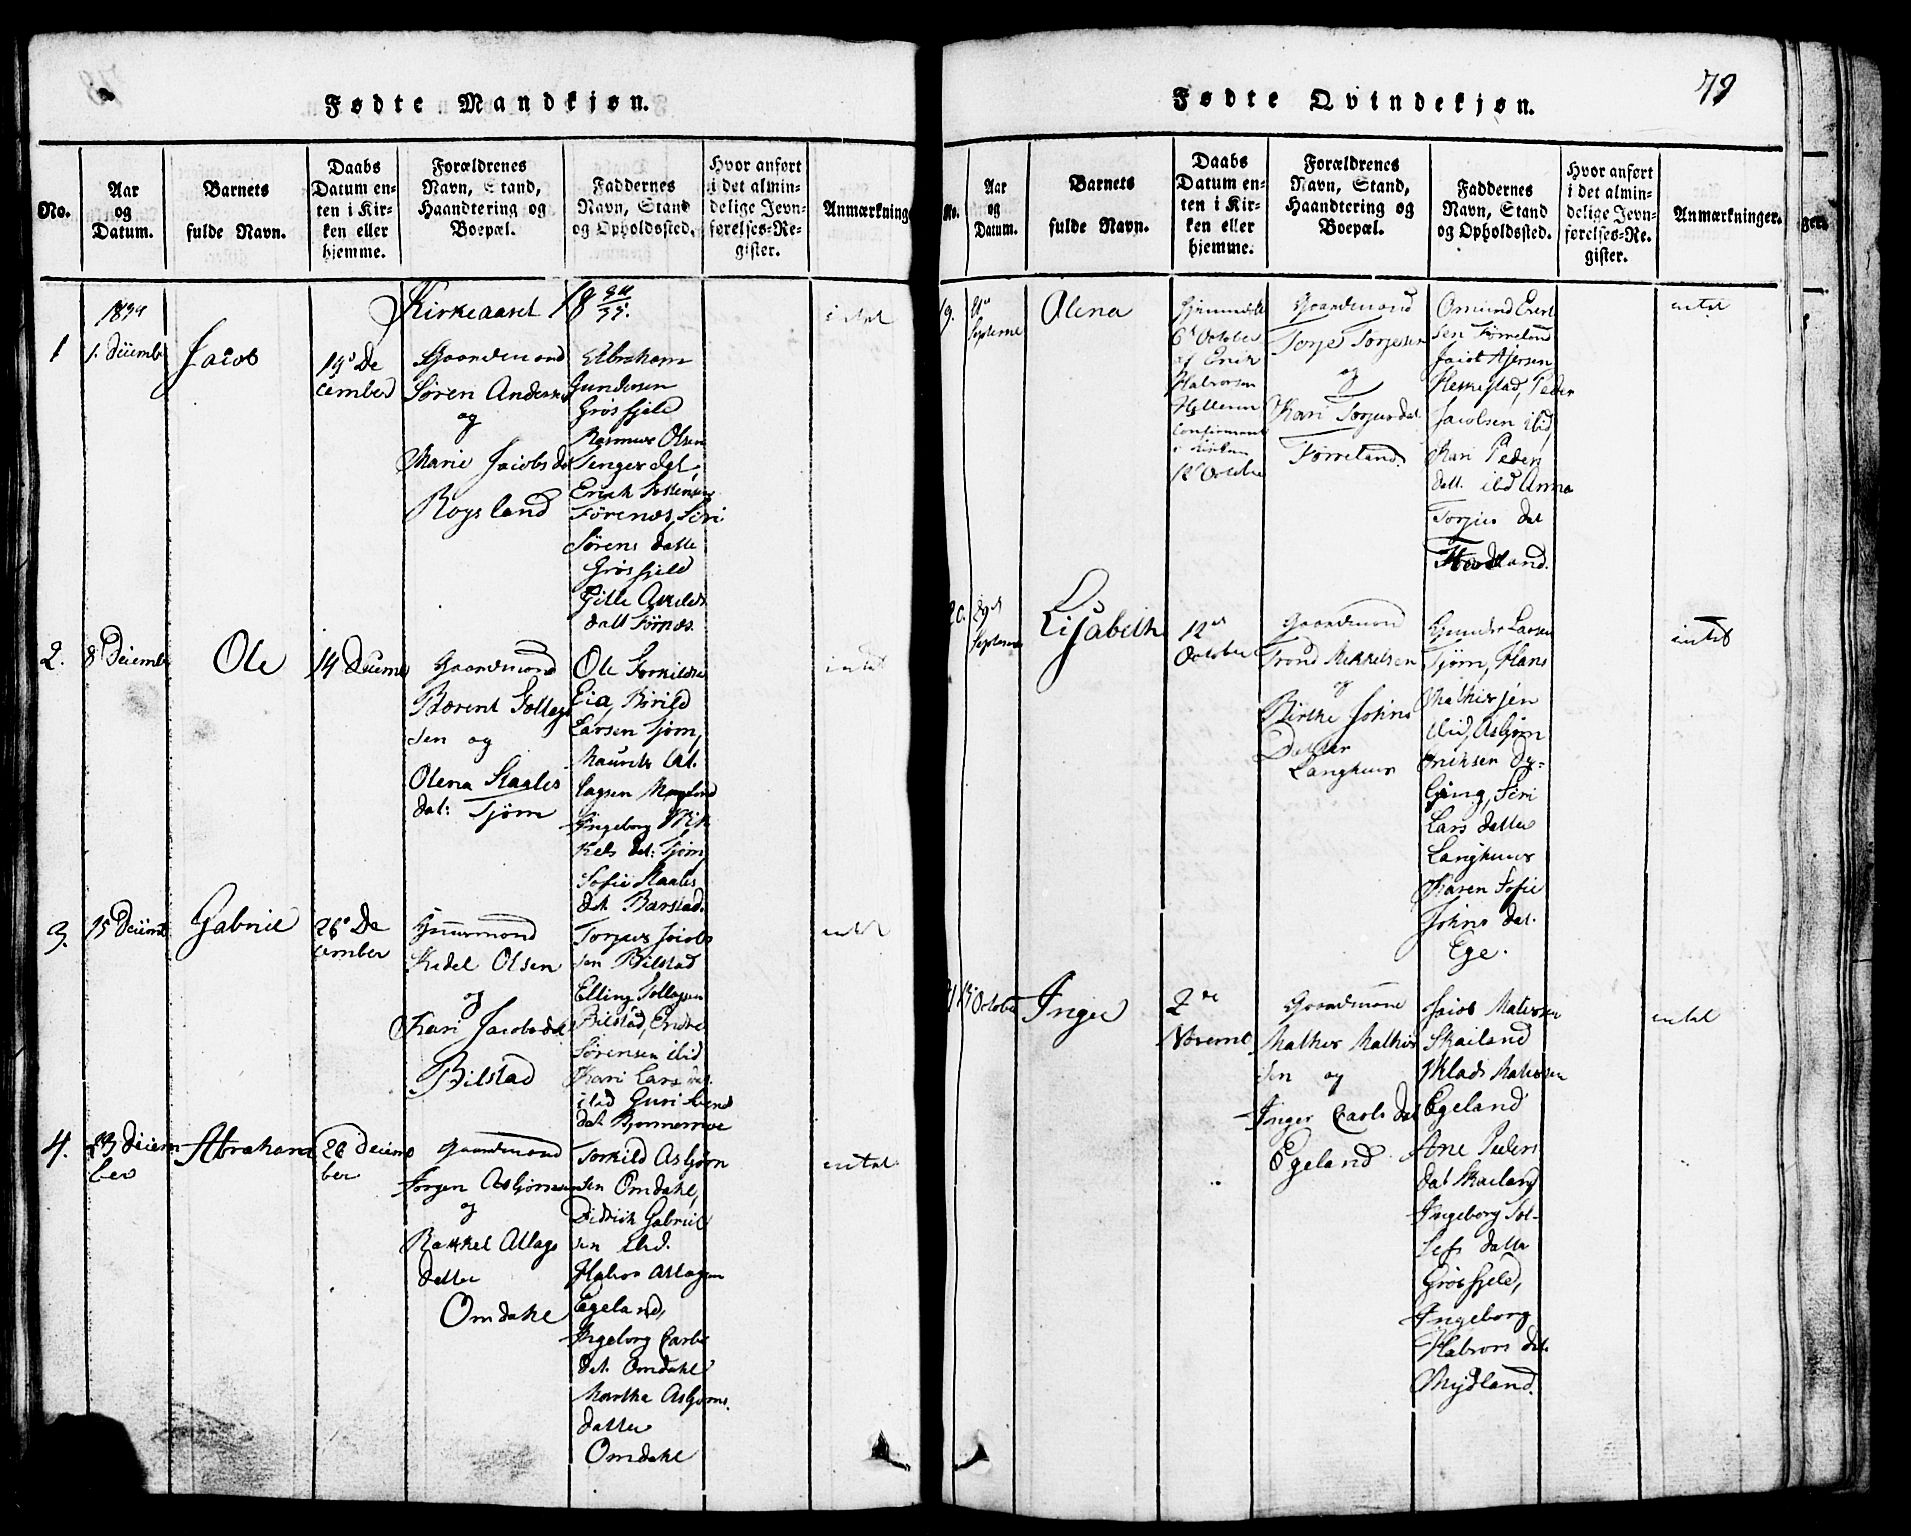 Fødte Mandkjøn.
No.
Aar
og
Datum.
Barnets
fulde Navn.
Daabs
Datum en-
ten i Kir-
ken eller
hjemme.
Forældrenes
Navn, Stand,
Haandtering og
Boepæl.
Faddernes
Navn, Stand
og Opholdssted.
Hvor anført
i det almin-
delige Jevn-
førelses-Re-
gister.
Anmærkninger
1834
Kirkeaaret 18 34/35.
1
1. Decembr
Jacob
19d De
cember
Gaardmand
Søren Anderse
og
Marie Jacobs dt
Rogsland
Abraham
Gundersen
Grøsfjeld
Rasmus Olsen
Erich
Førenes, Siri
Sørens datte
Grøsfjeld
datt Førnes.
intet
2.
8 Decembr
Ole
14 Decemb
Gaardmand
Berent Tollags
sen og
Olena Staales
dat: Tjørn
Ole Torkildse
Eia, Borild
Larsen Tjørn,
Maurits
Ingeborg Mik
kels dat: Tjørn
Sofie Staales
dat. Barstad.
intet
3.
15 Decemb
Gabriel
26d De
cember
Huusmand
Kedel Olsen
og
Kari Jacobs dat
Bilstad
Torjus Jacob
sen Bilstad
Elling Tollagsen
Bilstad, Endre
Sørensen ibid
Kari Lars dat.
ibid Guri Svends
dat.
intet
4.
23 Decem
ber
Abraham
26 Decem
ber
Gaardmand
Jørgen Asbjørnsen
og
Rakkel Atlags
datter
Omdahl
Torkild Asbjørn
sen Omdahl,
Didrich Gabriel
sen ibid.
Halvor Atlagsen
Egeland,
Ingeborg Carls
dat. Omdahl
Martha Asbjørns.
datter
Omdahl
intet
79
Fødte Qvindekjøn.
No.
Aar
og
Datum.
Barnets
fulde Navn.
Daabs
Datum en-
ten i Kir-
ken eller
hjemme.
Forældrenes
Navn, Stand,
Haandtering og
Boepæl.
Faddernes
Navn, Stand
og Opholdssted.
Hvor anført
i det almin-
delige Jevn-
førelses-Re-
gister.
Anmærkninger.
19.
Septemb
Olena
Hjemmedt
6d October
af Erich
Halvorsen
Confirmeret
i Kirken
12d October
Gaardmand
Torje Torjesen
og
Kari Torjus dat.
Førreland.
Omund Evert
sen Førreland
Jacob
Heskestad, Peder
Jacobsen ibid,
Kari Peders
datt. ibid Anna
Torjus dat
intet
20.
29d
September
Lisabeth
12d
October
Gaardmand
Trond Mikkelsen
og
Birthe Johns
Datter
Langhuus
Gunder Larsen
Tjørn, Hans
Mathiesen
ibid, Asbjørn
Eriksen Dy-
bing, Siri
Lars datter
Langhuus
Karen Sofie
Johns dat.
Ege.
intet
21
October
Inger
2de
Novemb
Gaardmand
Mathis Mathis
sen og
Inger Carls dat
Egeland
Jacob Matissen
Skailand
Mads Matissen
Egeland
Ane Peders
dat Skailand
Ingeborg Tol-
lefs datter
Grøsfjeld,
Ingeborg
Halvors dat.
Mydland.
intet